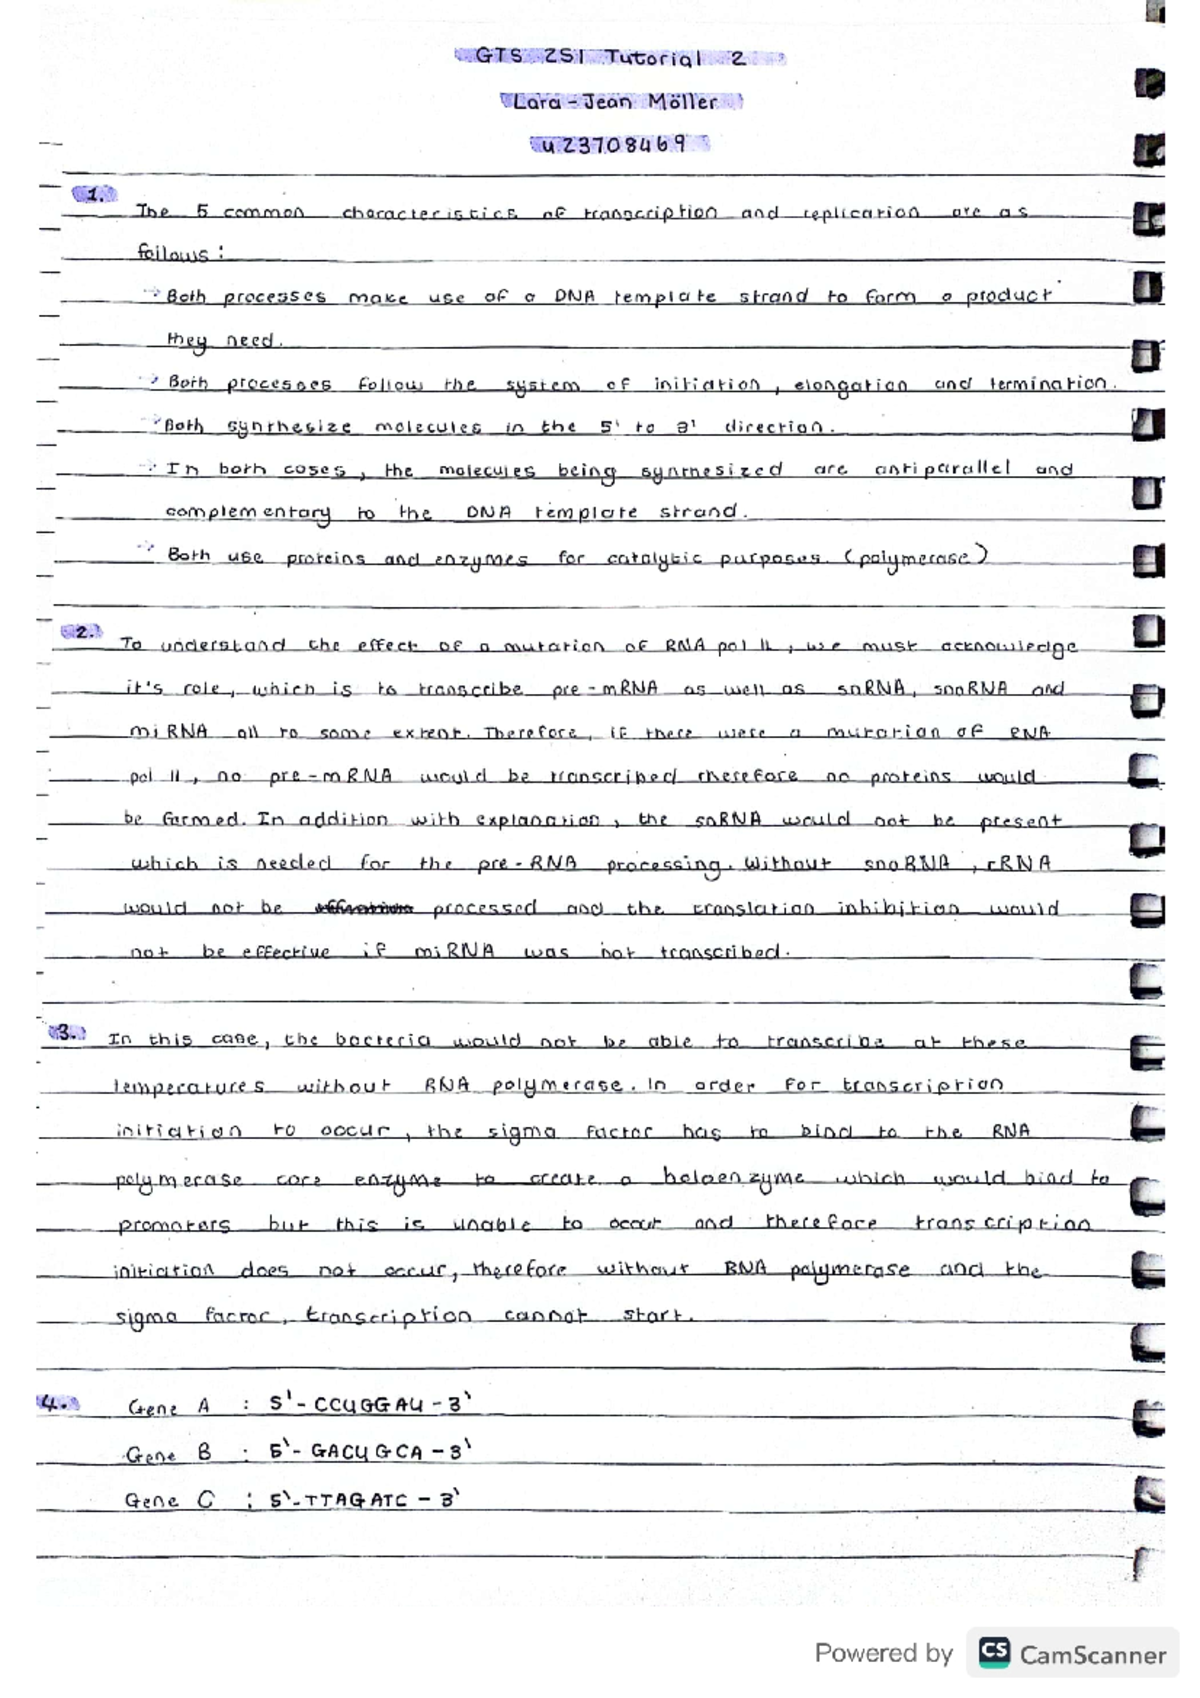 GTS 251 Tutorial 2
Lara-Jean Möller
u23708469
1. The 5 common characteristics of transcription and replication are as
follows:
Both processes make use of a DNA template strand to form a product
they need.
Both processes follow the system of initiation, elongation and termination.
Both synthesize molecules in the 5' to 3' direction.
In both cases, the molecules being synthesized are antiparallel and
complementary to the DNA template strand.
Both use proteins and enzymes for catalytic purposes. (polymerase)
2. To understand the effect of a mutation of RNA pol II, we must acknowledge
it's role, which is to transcribe pre-mRNA as well as snRNA, snoRNA and
miRNA all to some extent. Therefore, if there were a mutation of RNA
pol II, no pre-mRNA would be transcribed therefore no proteins would
be formed. In addition with explanation, the snRNA would not be present
which is needed for the pre-RNA processing. Without snoRNA, rRNA
would not be processed and the translation inhibition would
not be effective if miRNA was not transcribed.
3. In this case, the bacteria would not be able to transcribe at these
temperatures without RNA polymerase. In order for transcription
initiation to occur, the sigma factor has to bind to the RNA
polymerase core enzyme to create a holoenzyme which would bind to
promoters but this is unable to occur and therefore transcription
initiation does not occur, therefore without RNA polymerase and the
sigma factor, transcription cannot start.
4. Gene A : 5'-CCUGGAU-3'
Gene B : 5'-GACUGCA-3'
Gene C : 5'-TTAGATC-3'
Powered by CS CamScanner